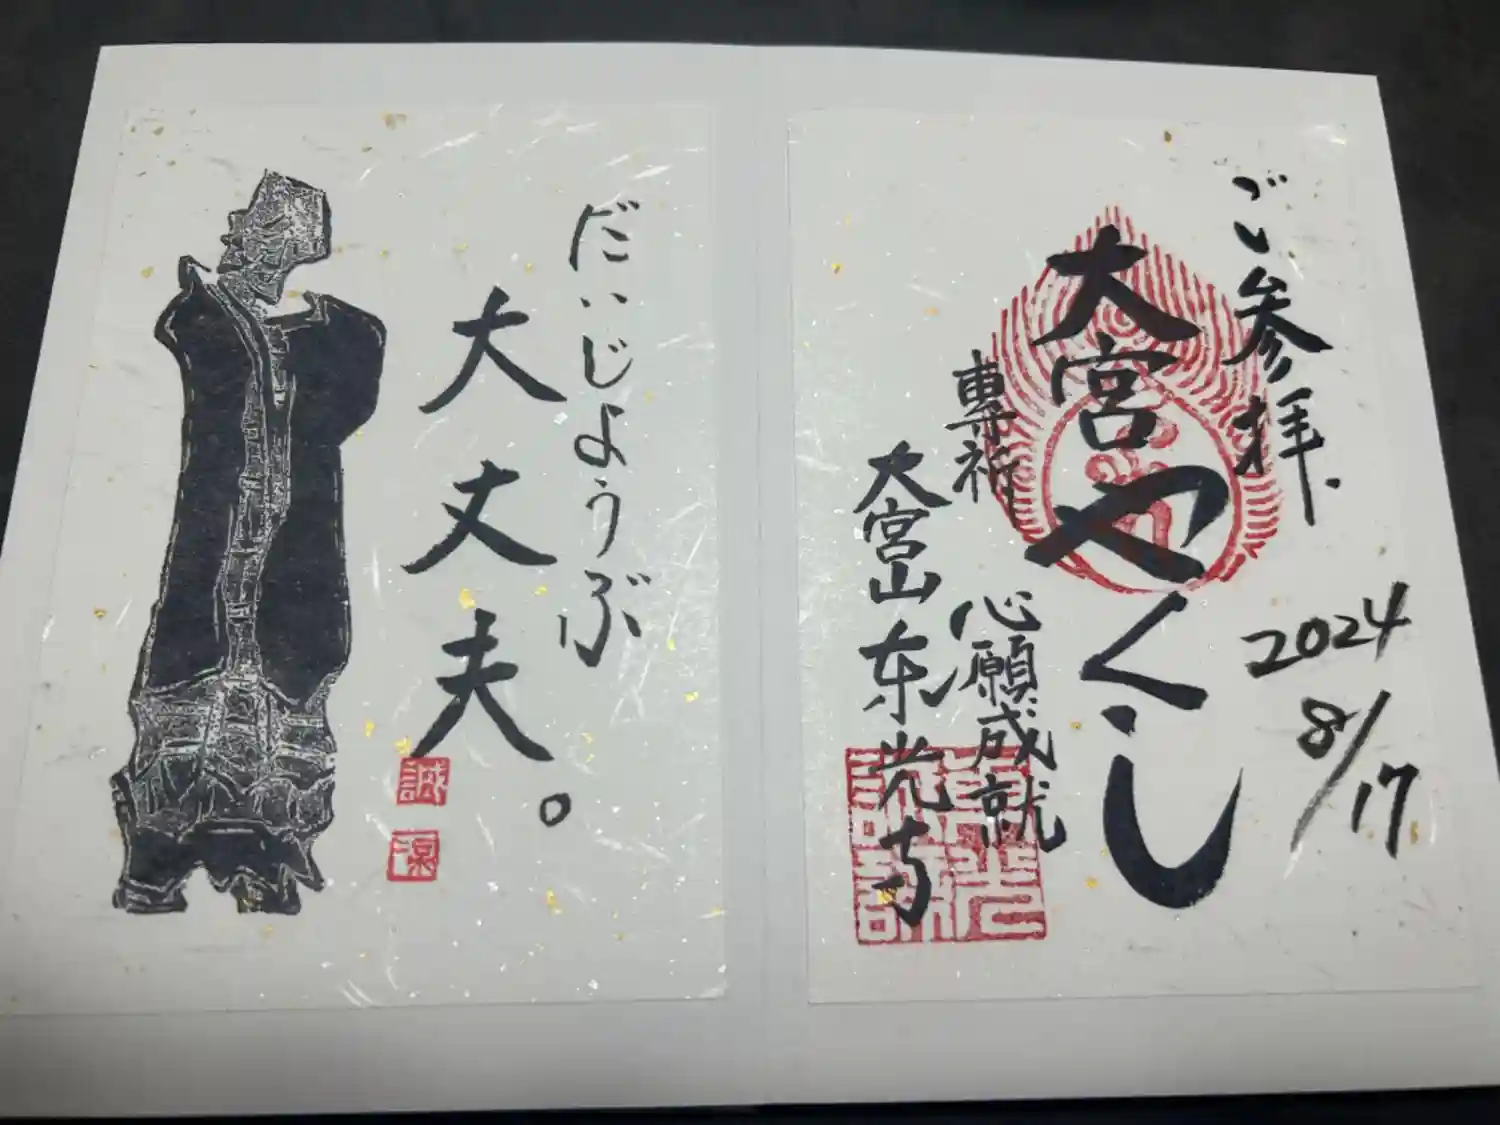 ご参拝.
2024
8/17
大宮やくし
専祈
心願成就
大宮山东光寺
だいじょうぶ
大丈夫。
誠